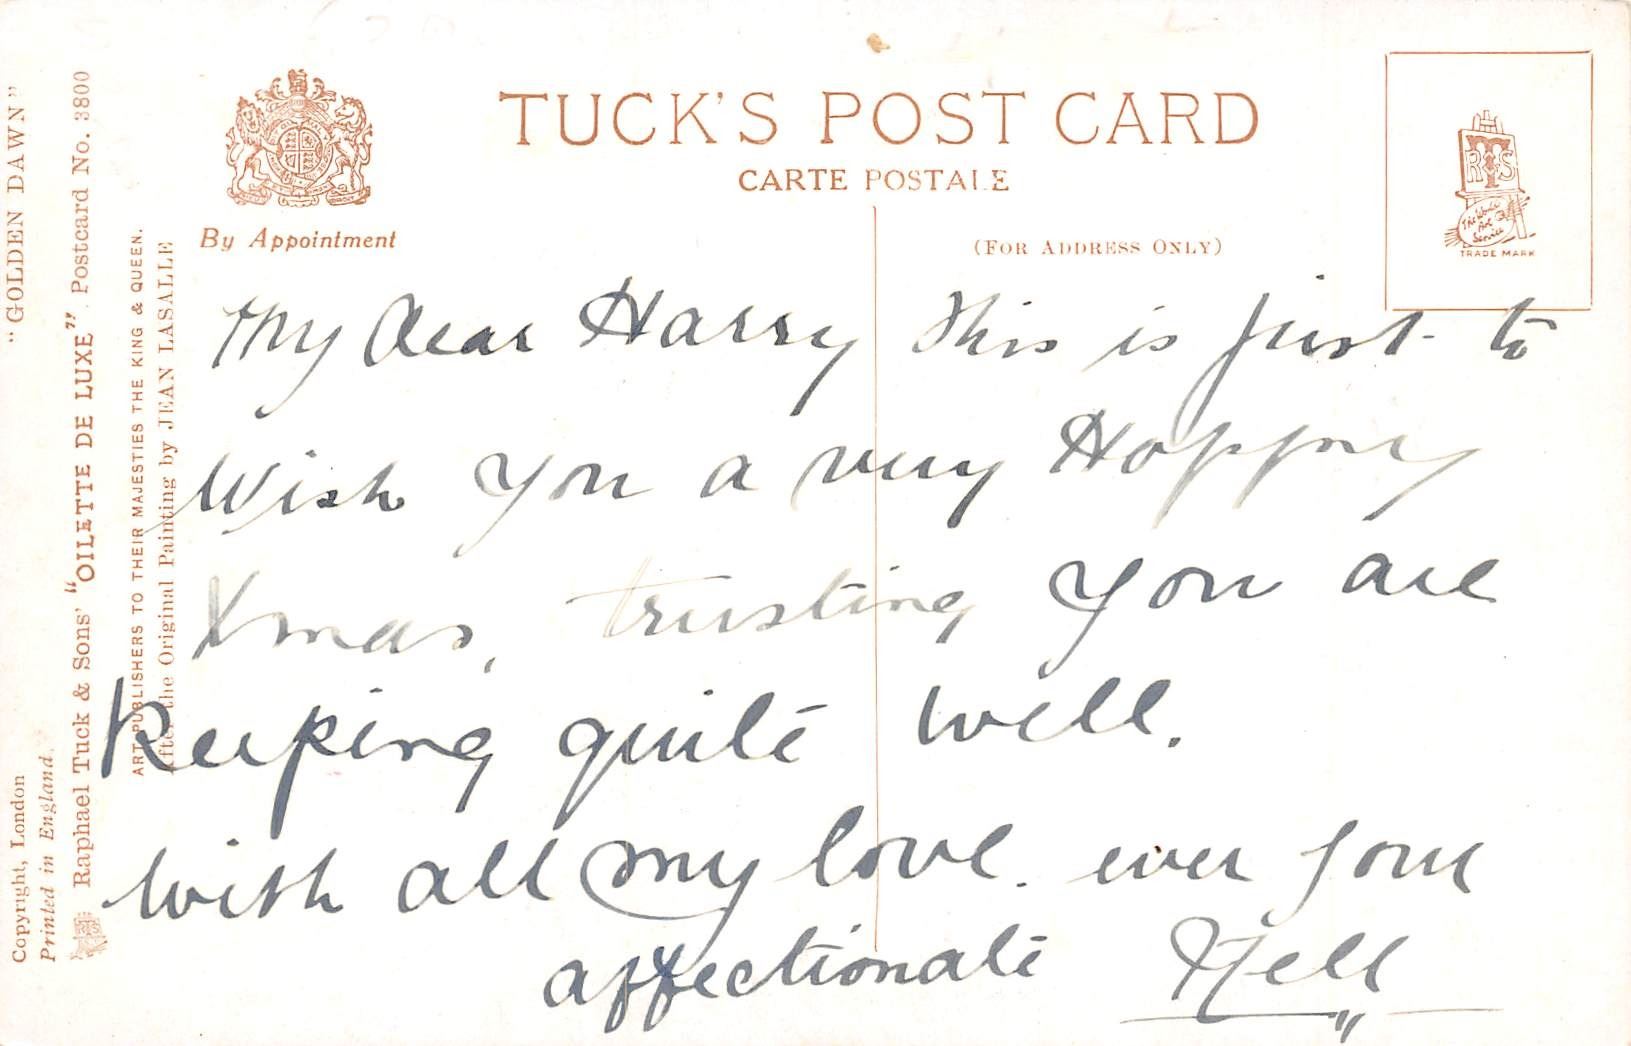 TUCK'S POST CARD
CARTE POSTALE
By Appointment
(FOR ADDRESS ONLY)
R T S
The World's Art Service
TRADE MARK
My dear Harry This is just to
Wish you a very Happy
Xmas, trusting you are
keeping quite well.
With all my love. ever your
affectionate Nell
"GOLDEN DAWN"
Copyright, London
Printed in England.
Raphael Tuck & Sons' "OILETTE DE LUXE" Postcard No. 3800
ART PUBLISHERS TO THEIR MAJESTIES THE KING & QUEEN.
After the Original Painting by JEAN LASALLE